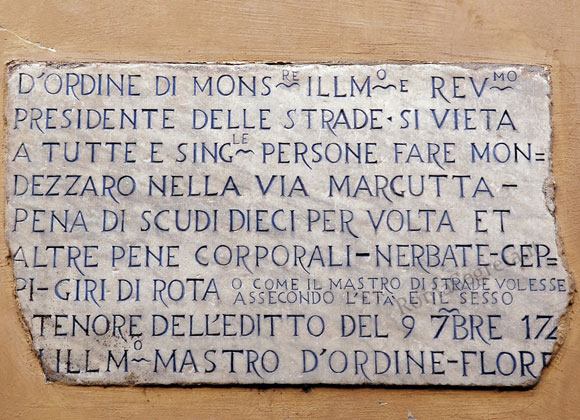 D'ORDINE DI MONS.RE ILLMO E REVMO
PRESIDENTE DELLE STRADE·SI VIETA
A TUTTE E SINGLE PERSONE FARE MON=
DEZZARO NELLA VIA MARGUTTA-
PENA DI SCUDI DIECI PER VOLTA ET
ALTRE PENE CORPORALI-NERBATE-CEP=
PI-GIRI DI ROTA O COME IL MASTRO DI STRADE VOLESSE
ASSECONDO L'ETÀ E IL SESSO
TENORE DELL'EDITTO DEL 9 7BRE 172
ILLMO MASTRO D'ORDINE-FLORE